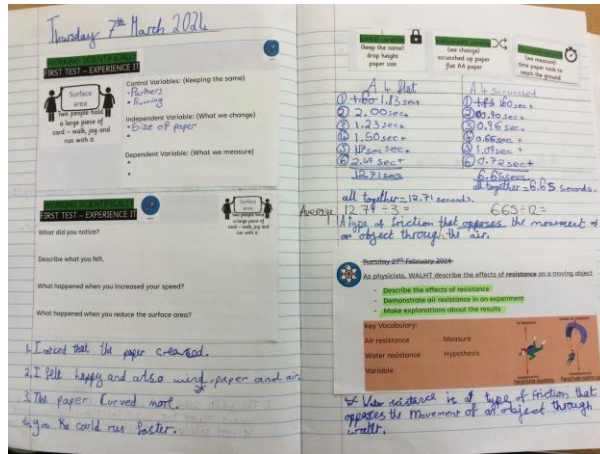 Thursday 7th March 2024
WORKING SCIENTIFICALLY
FIRST TEST – EXPERIENCE IT
Surface
area
Two people hold
a large piece of
card – walk, jog and
run with it.
Control Variables: (Keeping the same)
• Partners
• Running
Independent Variable: (What we change)
• Size of paper
Dependent Variable: (What we measure)
WORKING SCIENTIFICALLY
FIRST TEST – EXPERIENCE IT
Surface
area
Two people hold
a large piece of
card – walk, jog and
run with it
What did you notice?
Describe what you felt.
What happened when you increased your speed?
What happened when you reduce the surface area?
1. I noticed that the paper creased.
2. I felt happy and also wind, paper and air.
3. The paper curved more.
4. you could run faster.
(keep the same)
drop height
paper size
(we change)
scrunched up paper
flat A4 paper
(we measure)
time paper took to
reach the ground
A4 flat
① 1.83 sec
② 2.00 sec
③ 1.23 sec
④ 1.50 sec
12.71 sec
all together = 12.71 seconds.
A4 scrunched
② 0.90 sec
③ 0.96 sec
⑥ 0.72 sec
6.65 sec
all together = 6.65 seconds.
Average
A type of friction that opposes the movement of
an object through the air.
Tuesday 27th February 2024
As physicists, WALHT describe the effects of resistance on a moving object
- Describe the effects of resistance
- Demonstrate air resistance in an experiment
- Make explanations about the results
Key Vocabulary:
Air resistance Measure
Water resistance Hypothesis
Variable
type of friction that
opposes the Movement of an object through